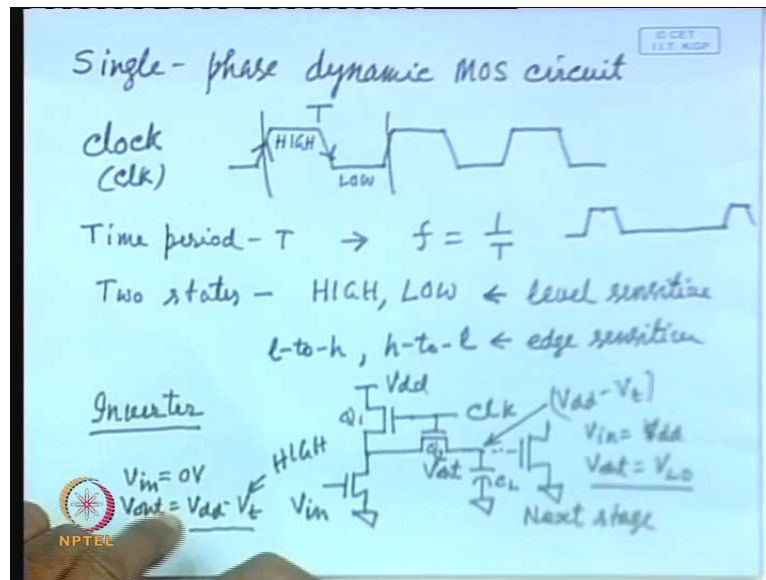 © CET
I.I.T. KGP
Single-phase dynamic MOS circuit
Clock
(Clk)
T
HIGH
LOW
Time period - T → f = 1/T
Two states - HIGH, LOW ← level sensitive
l-to-h, h-to-l ← edge sensitive
Inverter
Vdd
Q1
Clk
(Vdd - Vt)
HIGH
Vin = 0V
Vout = Vdd - Vt
Vin
Vout
CL
Vin = Vdd
Vout = VLO
Next stage
NPTEL